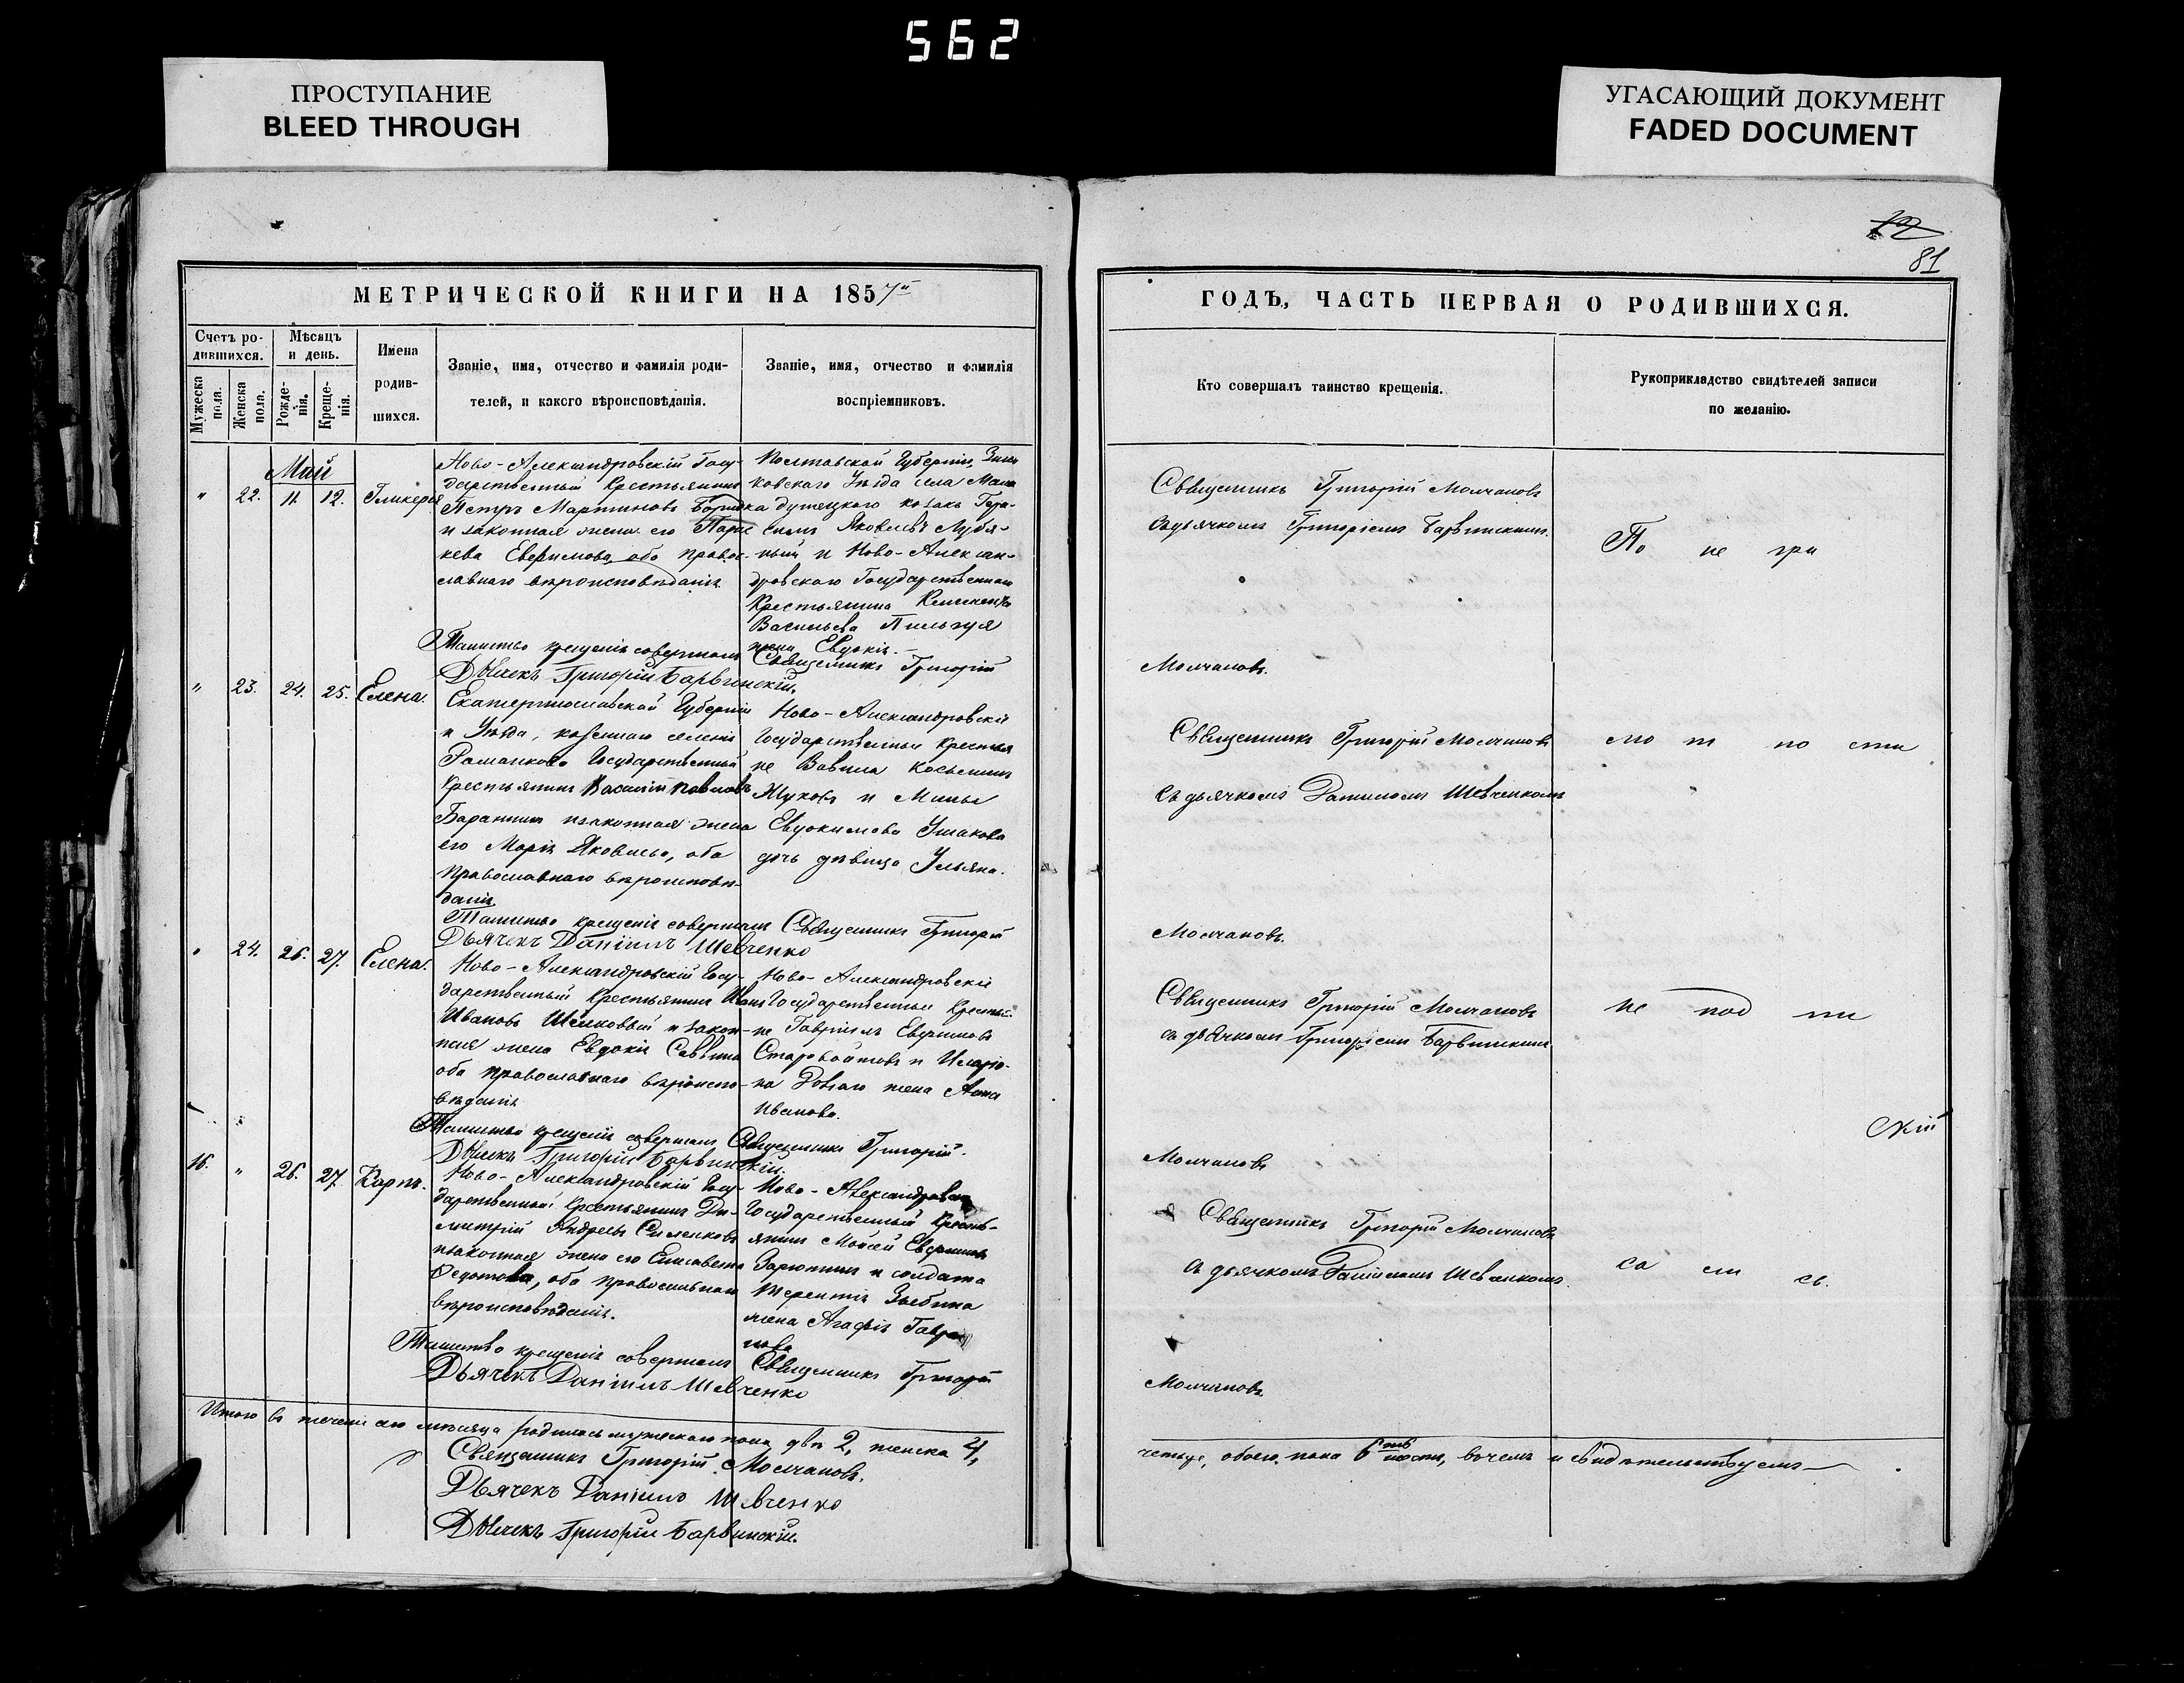 562
ПРОСТУПАНИЕ
BLEED THROUGH
УГАСАЮЩИЙ ДОКУМЕНТ
FADED DOCUMENT
81
МЕТРИЧЕСКОЙ КНИГИ НА 1857й
Счетъ ро-
дившихся.
Мужеска
пола.
Женска
пола.
Мѣсяцъ
и день.
Рожде-
нія.
Креще-
нія.
Имена
родив-
шихся.
Званіе, имя, отчество и фамилія роди-
телей, и какого вѣроисповѣданія.
Званіе, имя, отчество и фамилія
воспріемниковъ.
Май
" 22. 11. 12. Гликерія
Ново-Александровскій Госу-
дарственный Крестьянинъ
Петръ Мартиновъ
и законная жена его Парас
кева Евфимова, оба право-
славнаго вѣроисповѣданія.
Полтавской Губерніи, Зинь
ковскаго Уѣзда села
козака Гера-
симъ Яковлевъ
и Ново-Алексан-
дровскаго Государственнаго
Крестьянина
Васильева
жена Евдокія.
Таинство крещенія совершалъ Священникъ Григорій
Дьячекъ Григорій Барвинскій.
" 23. 24. 25. Елена.
Екатеринославской Губерніи
и Уѣзда, казеннаго селенія
Романкова Государственный
Крестьянинъ Василій Павловъ
и законная жена
его Марія Яковлева, оба
Православнаго вѣроисповѣ-
данія
Ново-Александровскіе
Государственные Крестья
не Вавила Косьминъ
Жуковъ и Мины
Евдокимова Ушакова
дочь дѣвица Ульяна.
Таинство крещенія совершалъ Священникъ Григорій
Дьячекъ Даніилъ Шевченко
" 24. 26. 27. Елена.
Ново-Александровскій Госу-
дарственный Крестьянинъ Иванъ
Ивановъ и закон-
ная жена Евдокія Саввина
оба православнаго вѣроиспо-
вѣданія
Ново-Александровскіе
Государственные Крестья-
не Гавріилъ Евфимовъ
Старовойтовъ и Иларіо-
на Довгаго жена Анна
Иванова.
Таинство крещенія совершалъ Священникъ Григорій
Дьячекъ Григорій Барвинскій.
16. " 26. 27. Карпъ.
Ново-Александровскій Госу-
дарственный Крестьянинъ Ди-
митрій Андреевъ
и законная жена его Елисавета
Федотова, оба православнаго
вѣроисповѣданія.
Ново-Александровскій
Государственный Кресть-
янинъ Моисей Евфимовъ
и солдата
Терентія
жена Агафія Гаври
лова
Таинство крещенія совершалъ Священникъ Григорій
Дьячекъ Даніилъ Шевченко
Итого въ теченіи сего мѣсяца родилось мужескаго пола два 2, женска 4,
Священникъ Григорій Молчановъ.
Дьячекъ Даніилъ Шевченко
Дьячекъ Григорій Барвинскій.
ГОДЪ, ЧАСТЬ ПЕРВАЯ О РОДИВШИХСЯ.
Кто совершалъ таинство крещенія.
Рукоприкладство свидѣтелей записи
по желанію.
Священникъ Григорій Молчановъ
съ дьячкомъ Григоріемъ Барвинскимъ.
По не гри
Молчановъ.
Священникъ Григорій Молчановъ
съ дьячкомъ Даніиломъ Шевченкомъ
Молчановъ.
Священникъ Григорій Молчановъ
съ дьячкомъ Григоріемъ Барвинскимъ
не под пи
скій
Молчановъ
Священникъ Григорій Молчановъ
съ дьячкомъ Даніиломъ Шевченкомъ.
са ли сь.
Молчановъ.
четыре, обоего пола 6 шесть, въ чемъ и свидѣтельствуемъ